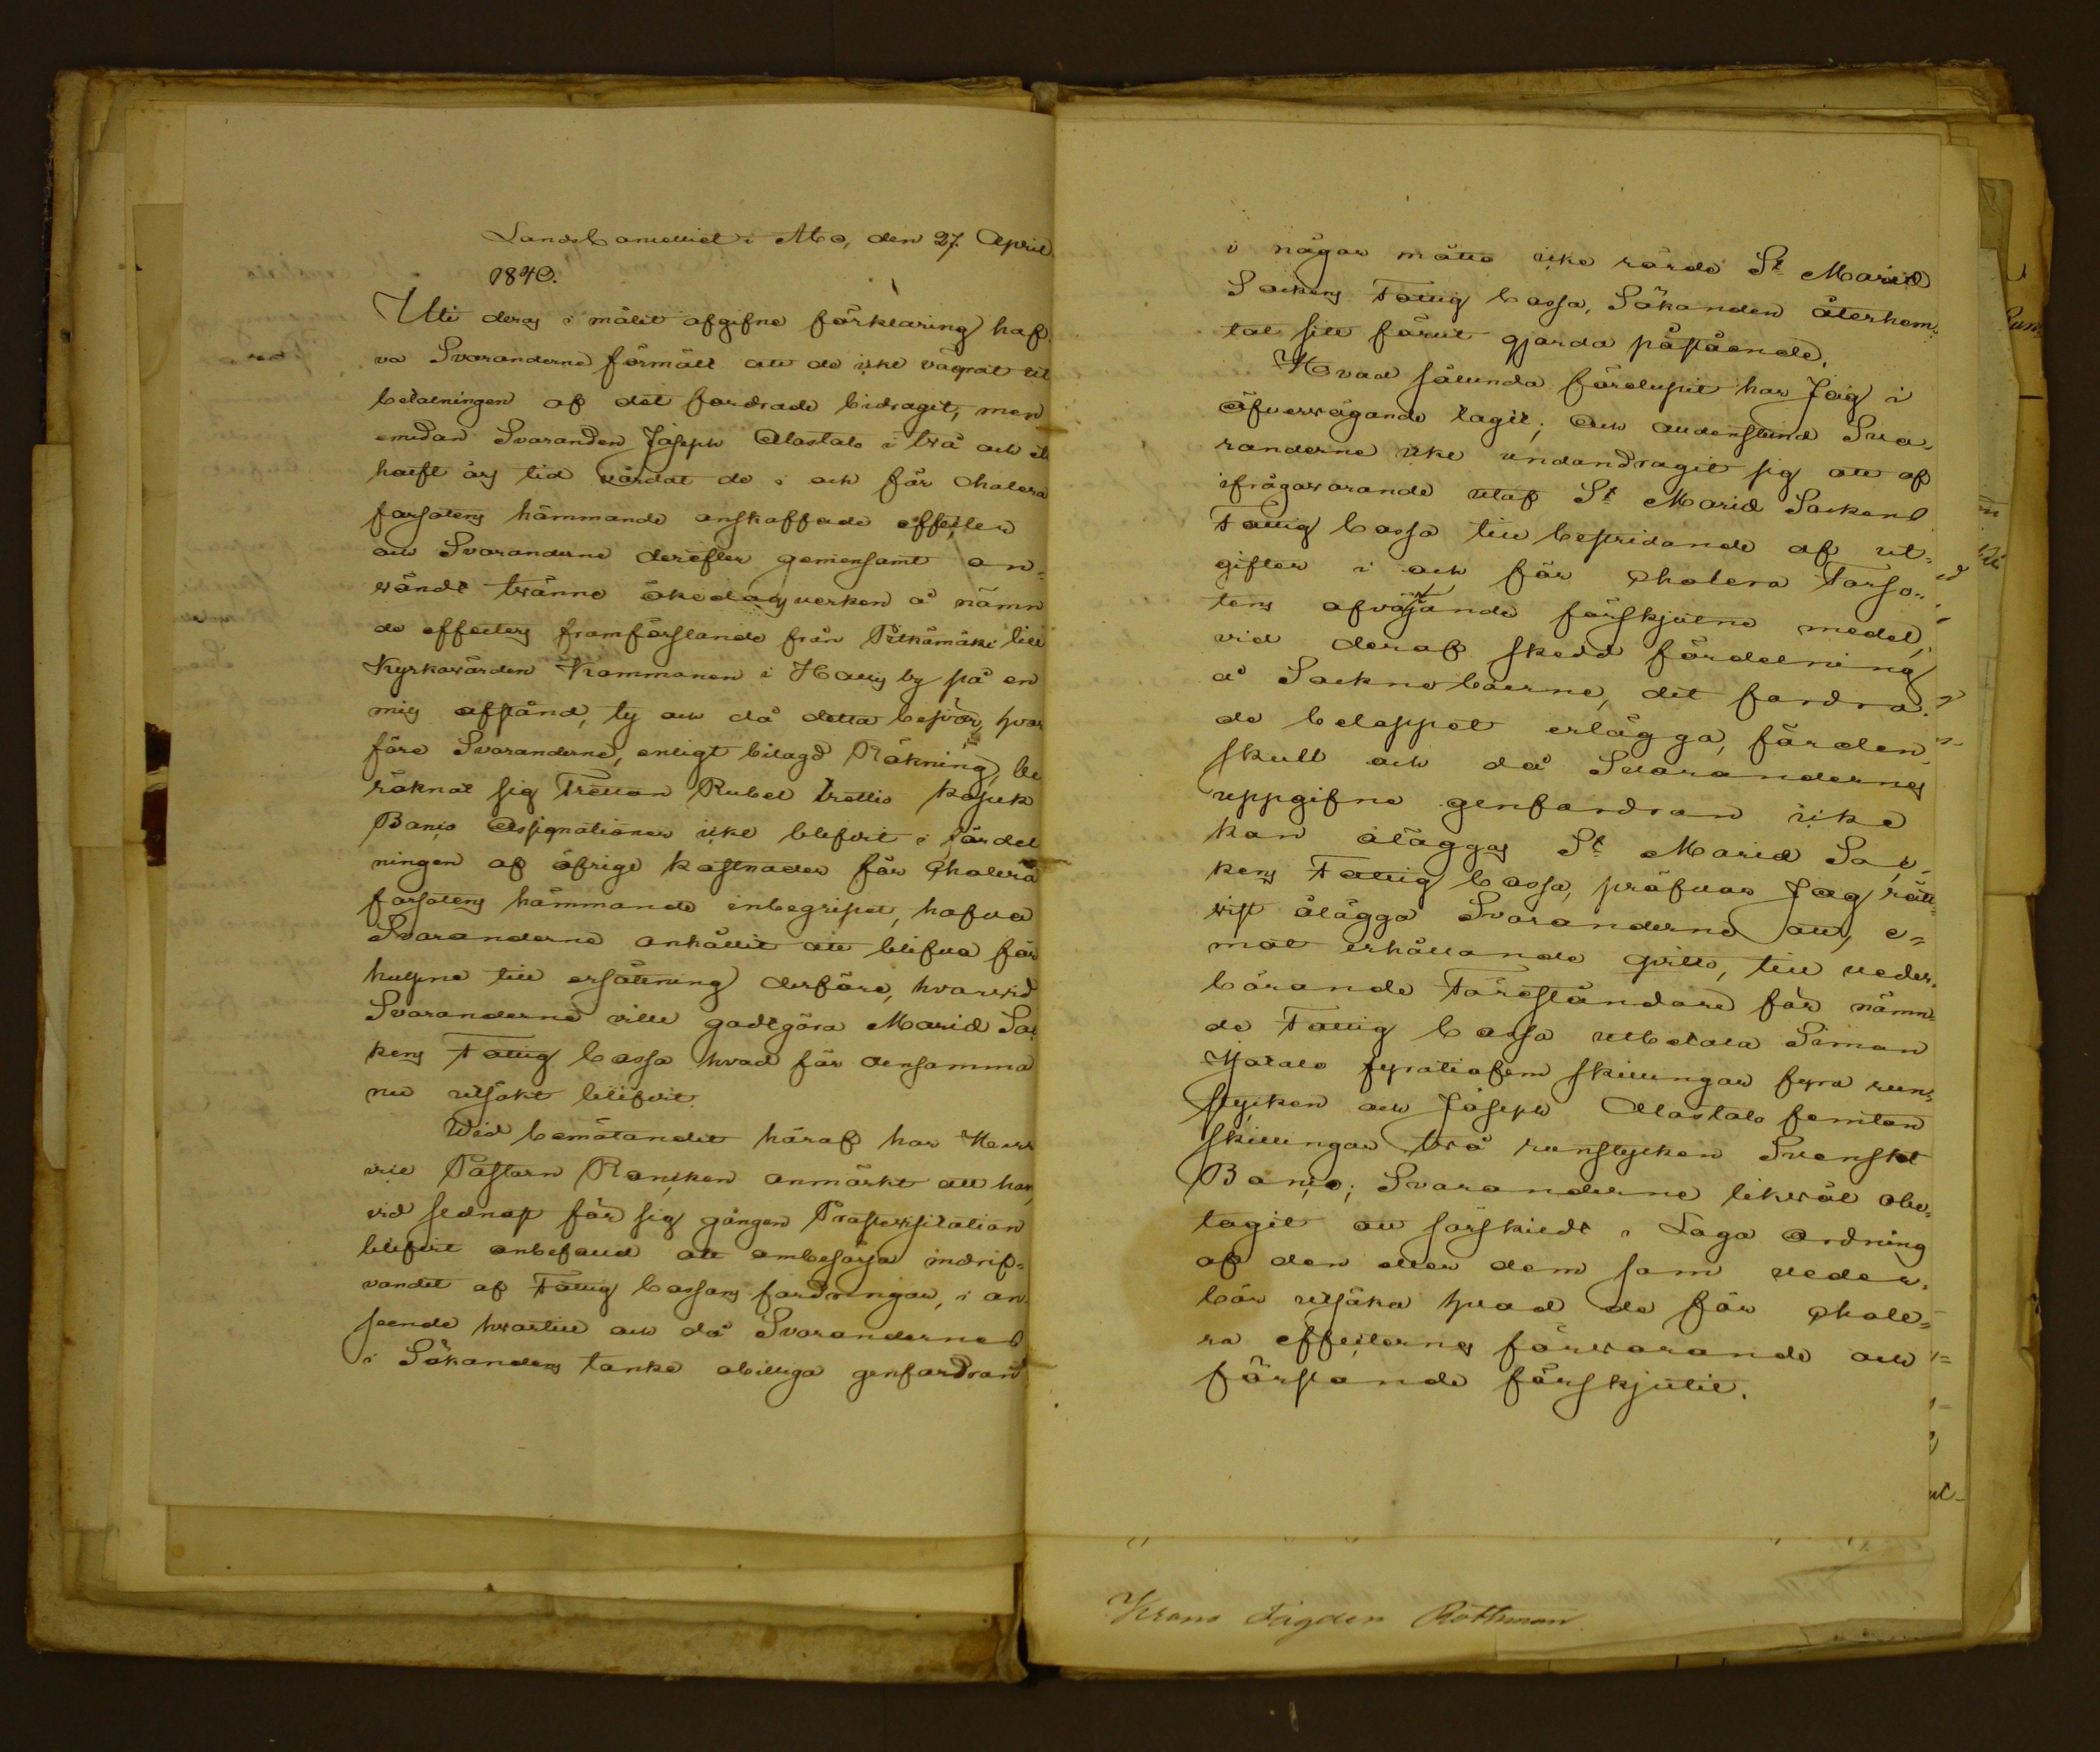 LandsCancelliet i Åbo, den 27. April
1840.
Uti deras i målet afgifne förklaring haf
va Svaranderne förmält att de icke vägrat til
betalningen af det fordrade bidraget, men
emedan Svaranden Joseph Alastalo i två och ett
halft års tid vårdat de i och för Cholera
farsotens hämmande anskaffade effecter
och Svaranderne derefter gemensamt an-
vändt tvänne ökedagsverken å nämn
de effecters framförslande från Pitkämäki till
Kyrkovärden Krommanen i Hallis by på en
mils afstånd, ty och då detta besvär, hvar
före Svaranderne, enligt bilagd Räkning, be
räknat sig Tretton Rubel trettio kopek
Banco Assignationer icke blifvit i fördel
ningen af öfrige kostnader för Cholera
farsotens hämmande inbegripet, hafva
Svaranderne anhållit att blifva för
hulpne till ersättning derföre, hvarvid
Svaranderne ville godtgöra Marie Soc
kens Fattig Cassa hvad för densamma
nu utsökt blifvit.
Wid bemötandet häraf har Herr
vice Pastorn Rancken anmärkt att han,
vid sednast för sig gången Prostevisitation
blifvit anbefalld att ombesörja indrif-
vandet af Fattig Cassans fordringar, i an
seende hvartill och då Svarandernes
i Sökandens tanke obilliga genfordran
i någor måtto icke rörde St Marie
Sockens Fattig Cassa, Sökanden återhem-
tat sitt förut gjorda påstående.
Hvad sålunda förelupit har Jag i
öfvervägande tagit; Och alldenstund Sva-
randerne icke undandragit sig att af
ifrågavarande utaf St Marie Sockens
Fattig Cassa till bestridande af ut-
gifter i och för Cholera Farso-
tens afvärjande förskjutne medel,
vid deraf skedd fördelning
å Socknoboerne, det fordra-
de beloppet erlägga, förden-
skull och då Svarandernes
uppgifne genfordran icke
kan åläggas St Marie Soc-
kens Fattig Cassa, pröfvar Jag rätt-
vist ålägga Svaranderne att, e-
mot erhållande qvitto, till veder-
börande Föreståndare för nämn-
de Fattig Cassa utbetala Simon
Yjatalo fyratiofem skillingar fyra run-
stycken och Joseph Alastalo femton
skillingar två runstycken Svenskt
Banco; Svaranderne likväl obe-
tagit att särskildt i Laga Ordning
af den eller dem som veder-
bör utsöka hvad de för Chole-
ra effecternes förvarande och
förslande förskjutit.
Krono Fogden Rothman